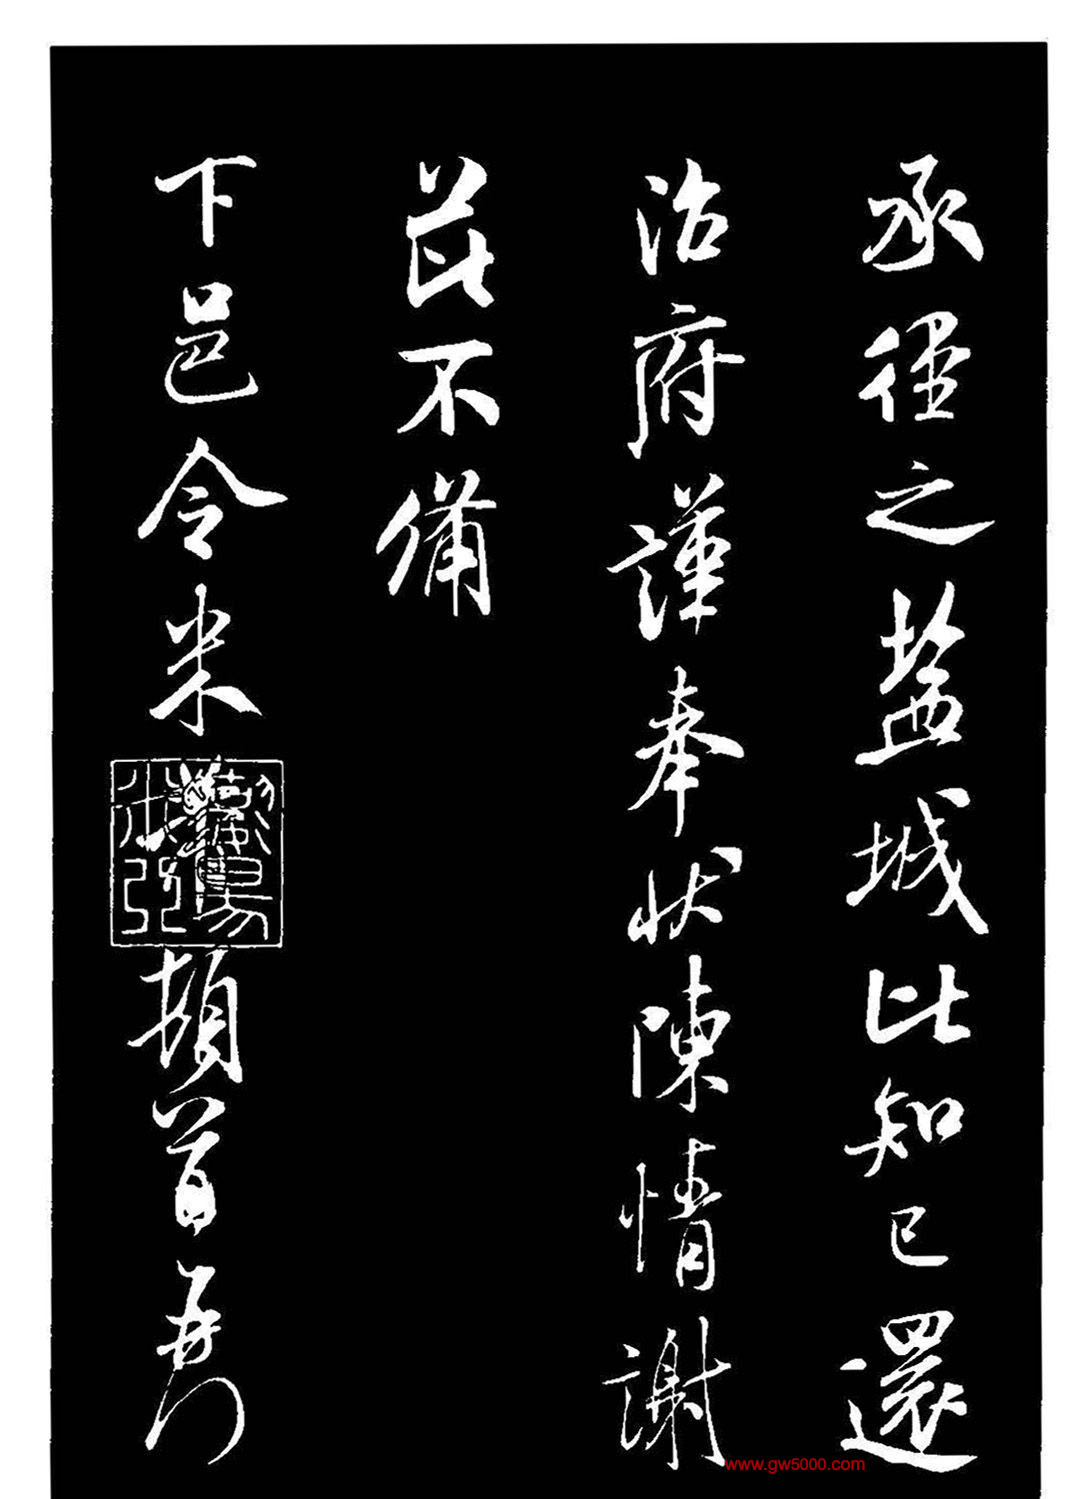 承徑之鹽城比知已還
治府謹奉狀陳情謝
茈不備
下邑令米
頓首再
www.gw5000.com